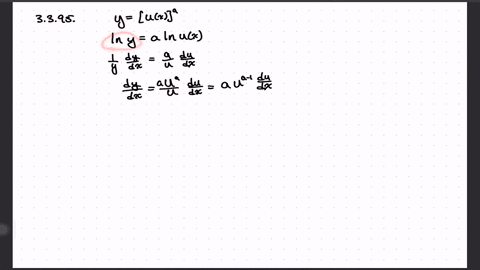 3.3.95. y = [u(x)]^a
ln y = a ln u(x)
1/y dy/dx = a/u du/dx
dy/dx = au^a/u du/dx = a u^(a-1) du/dx